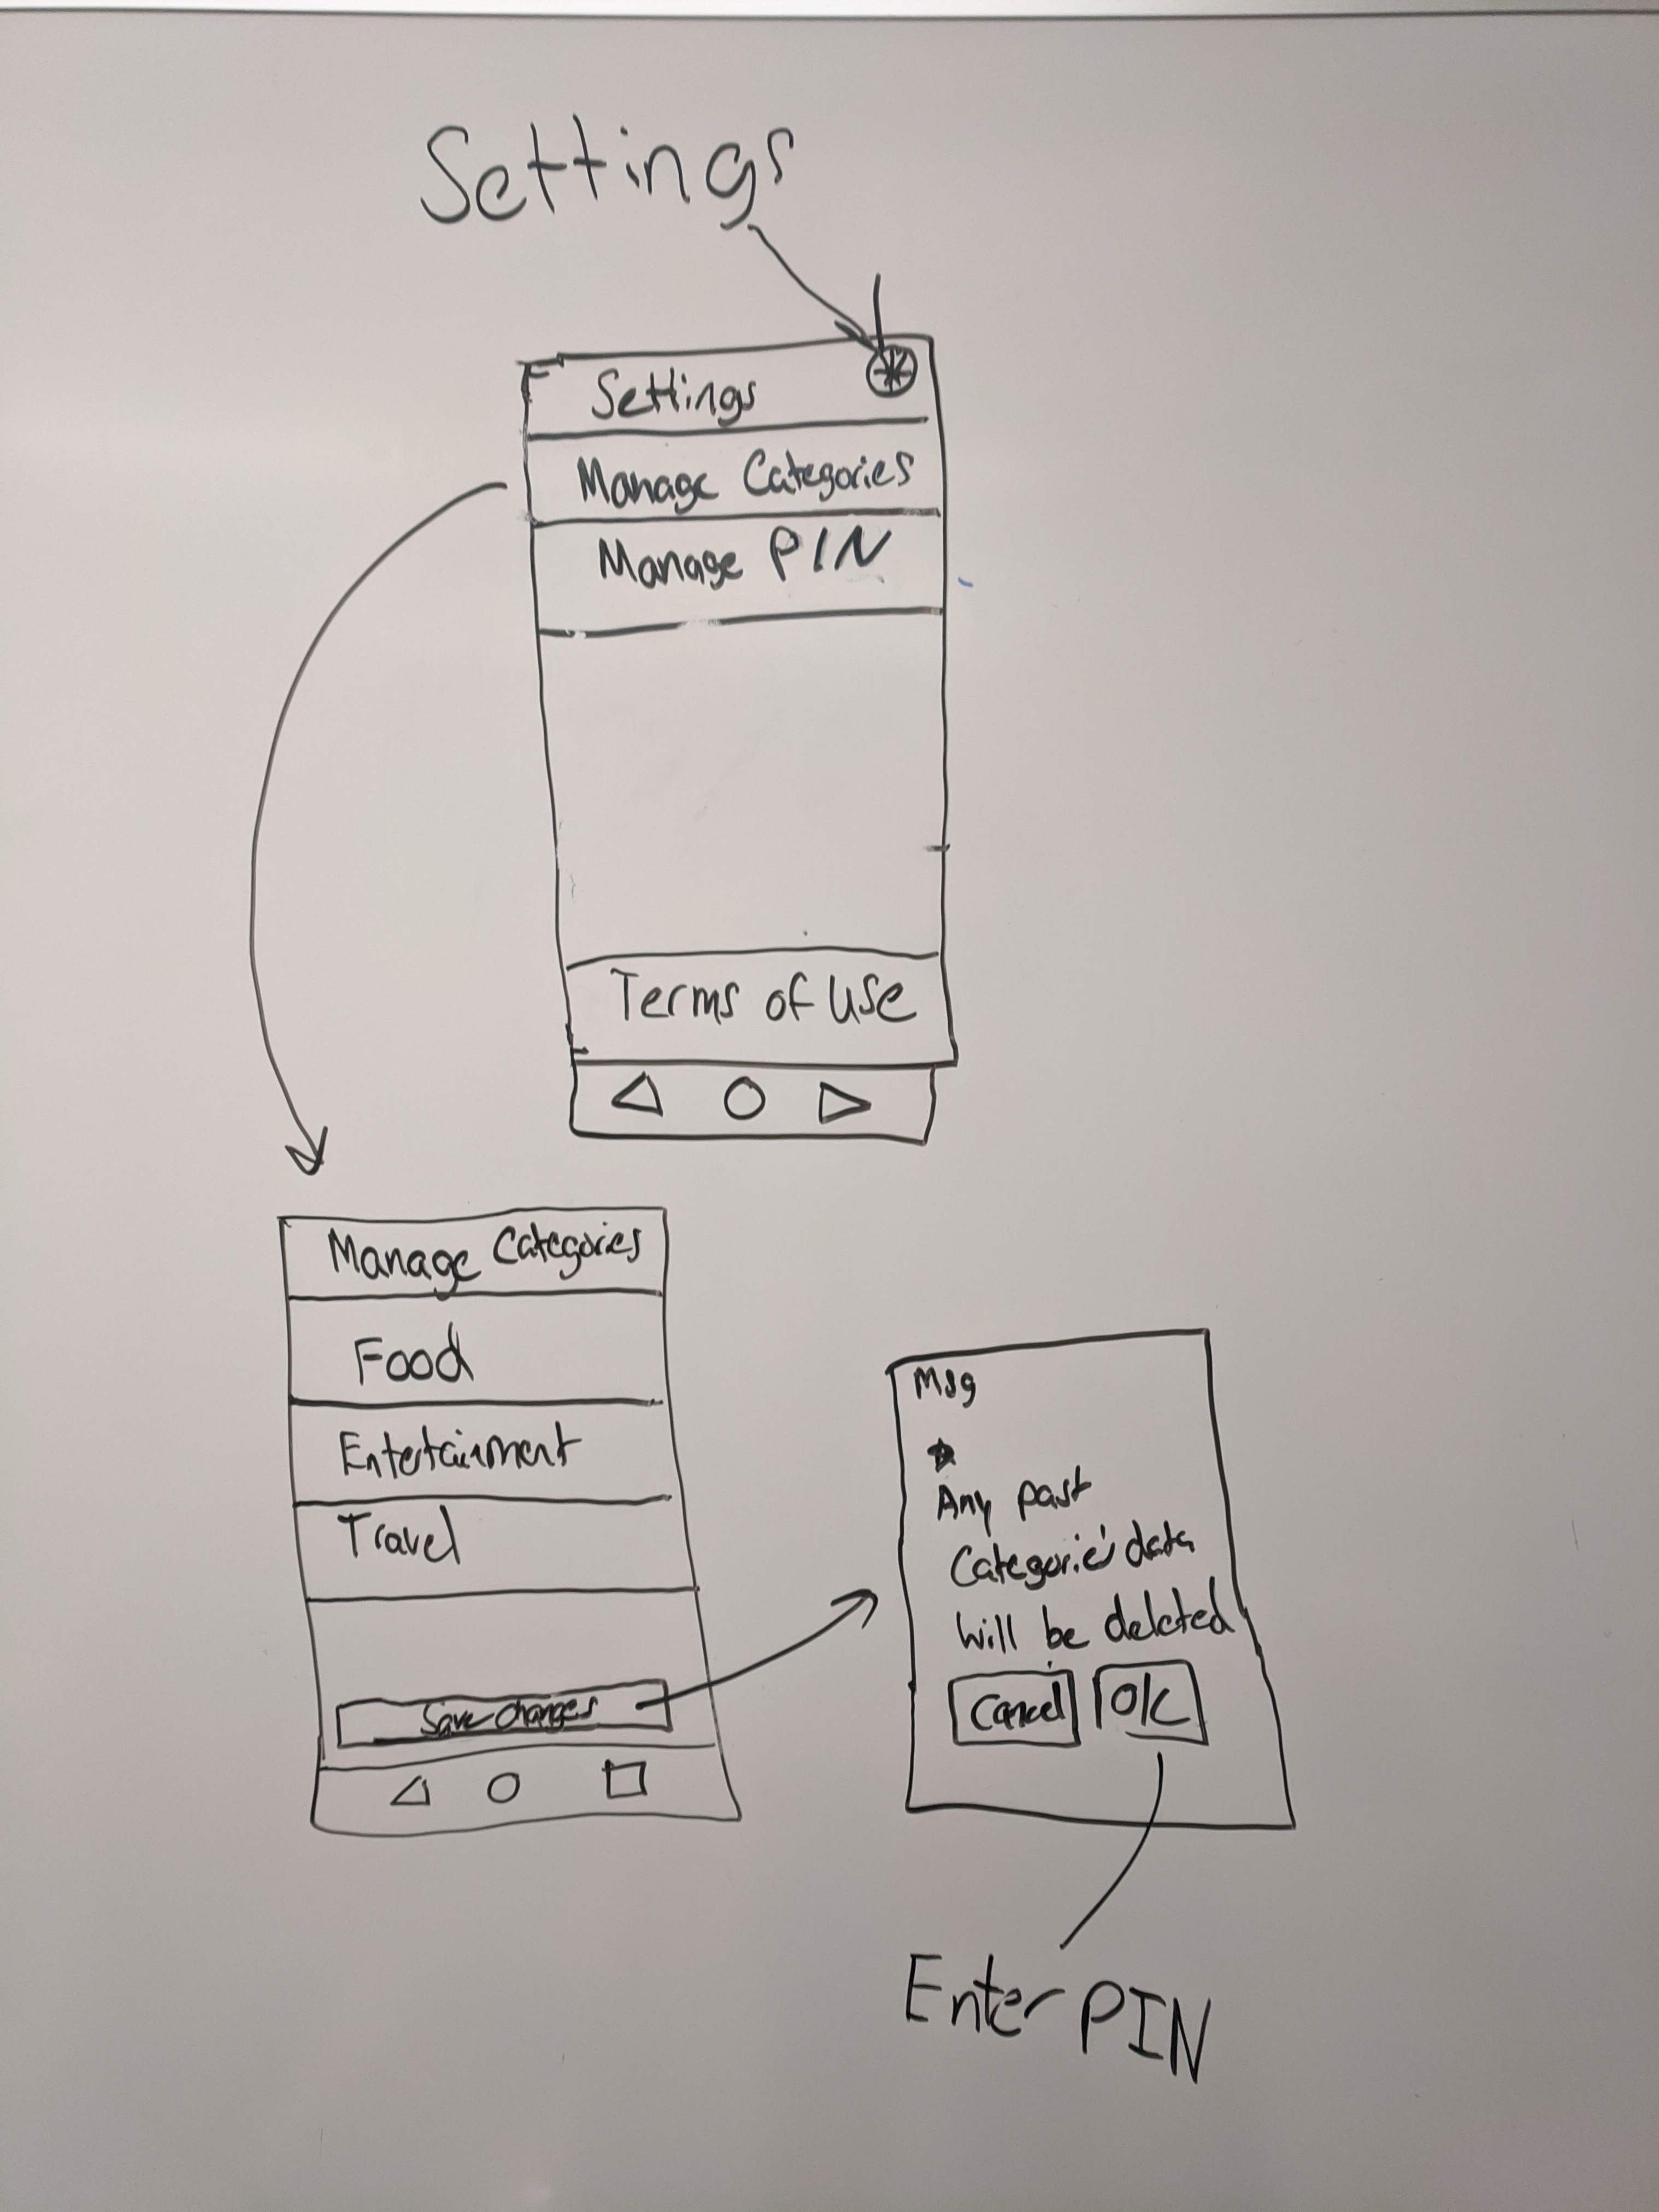 Settings
Settings
Manage Categories
Manage PIN
Terms of Use
Manage Categories
Food
Entertainment
Travel
Save changes
Msg
Any past
Categorie's data
will be deleted
Cancel
OK
Enter PIN